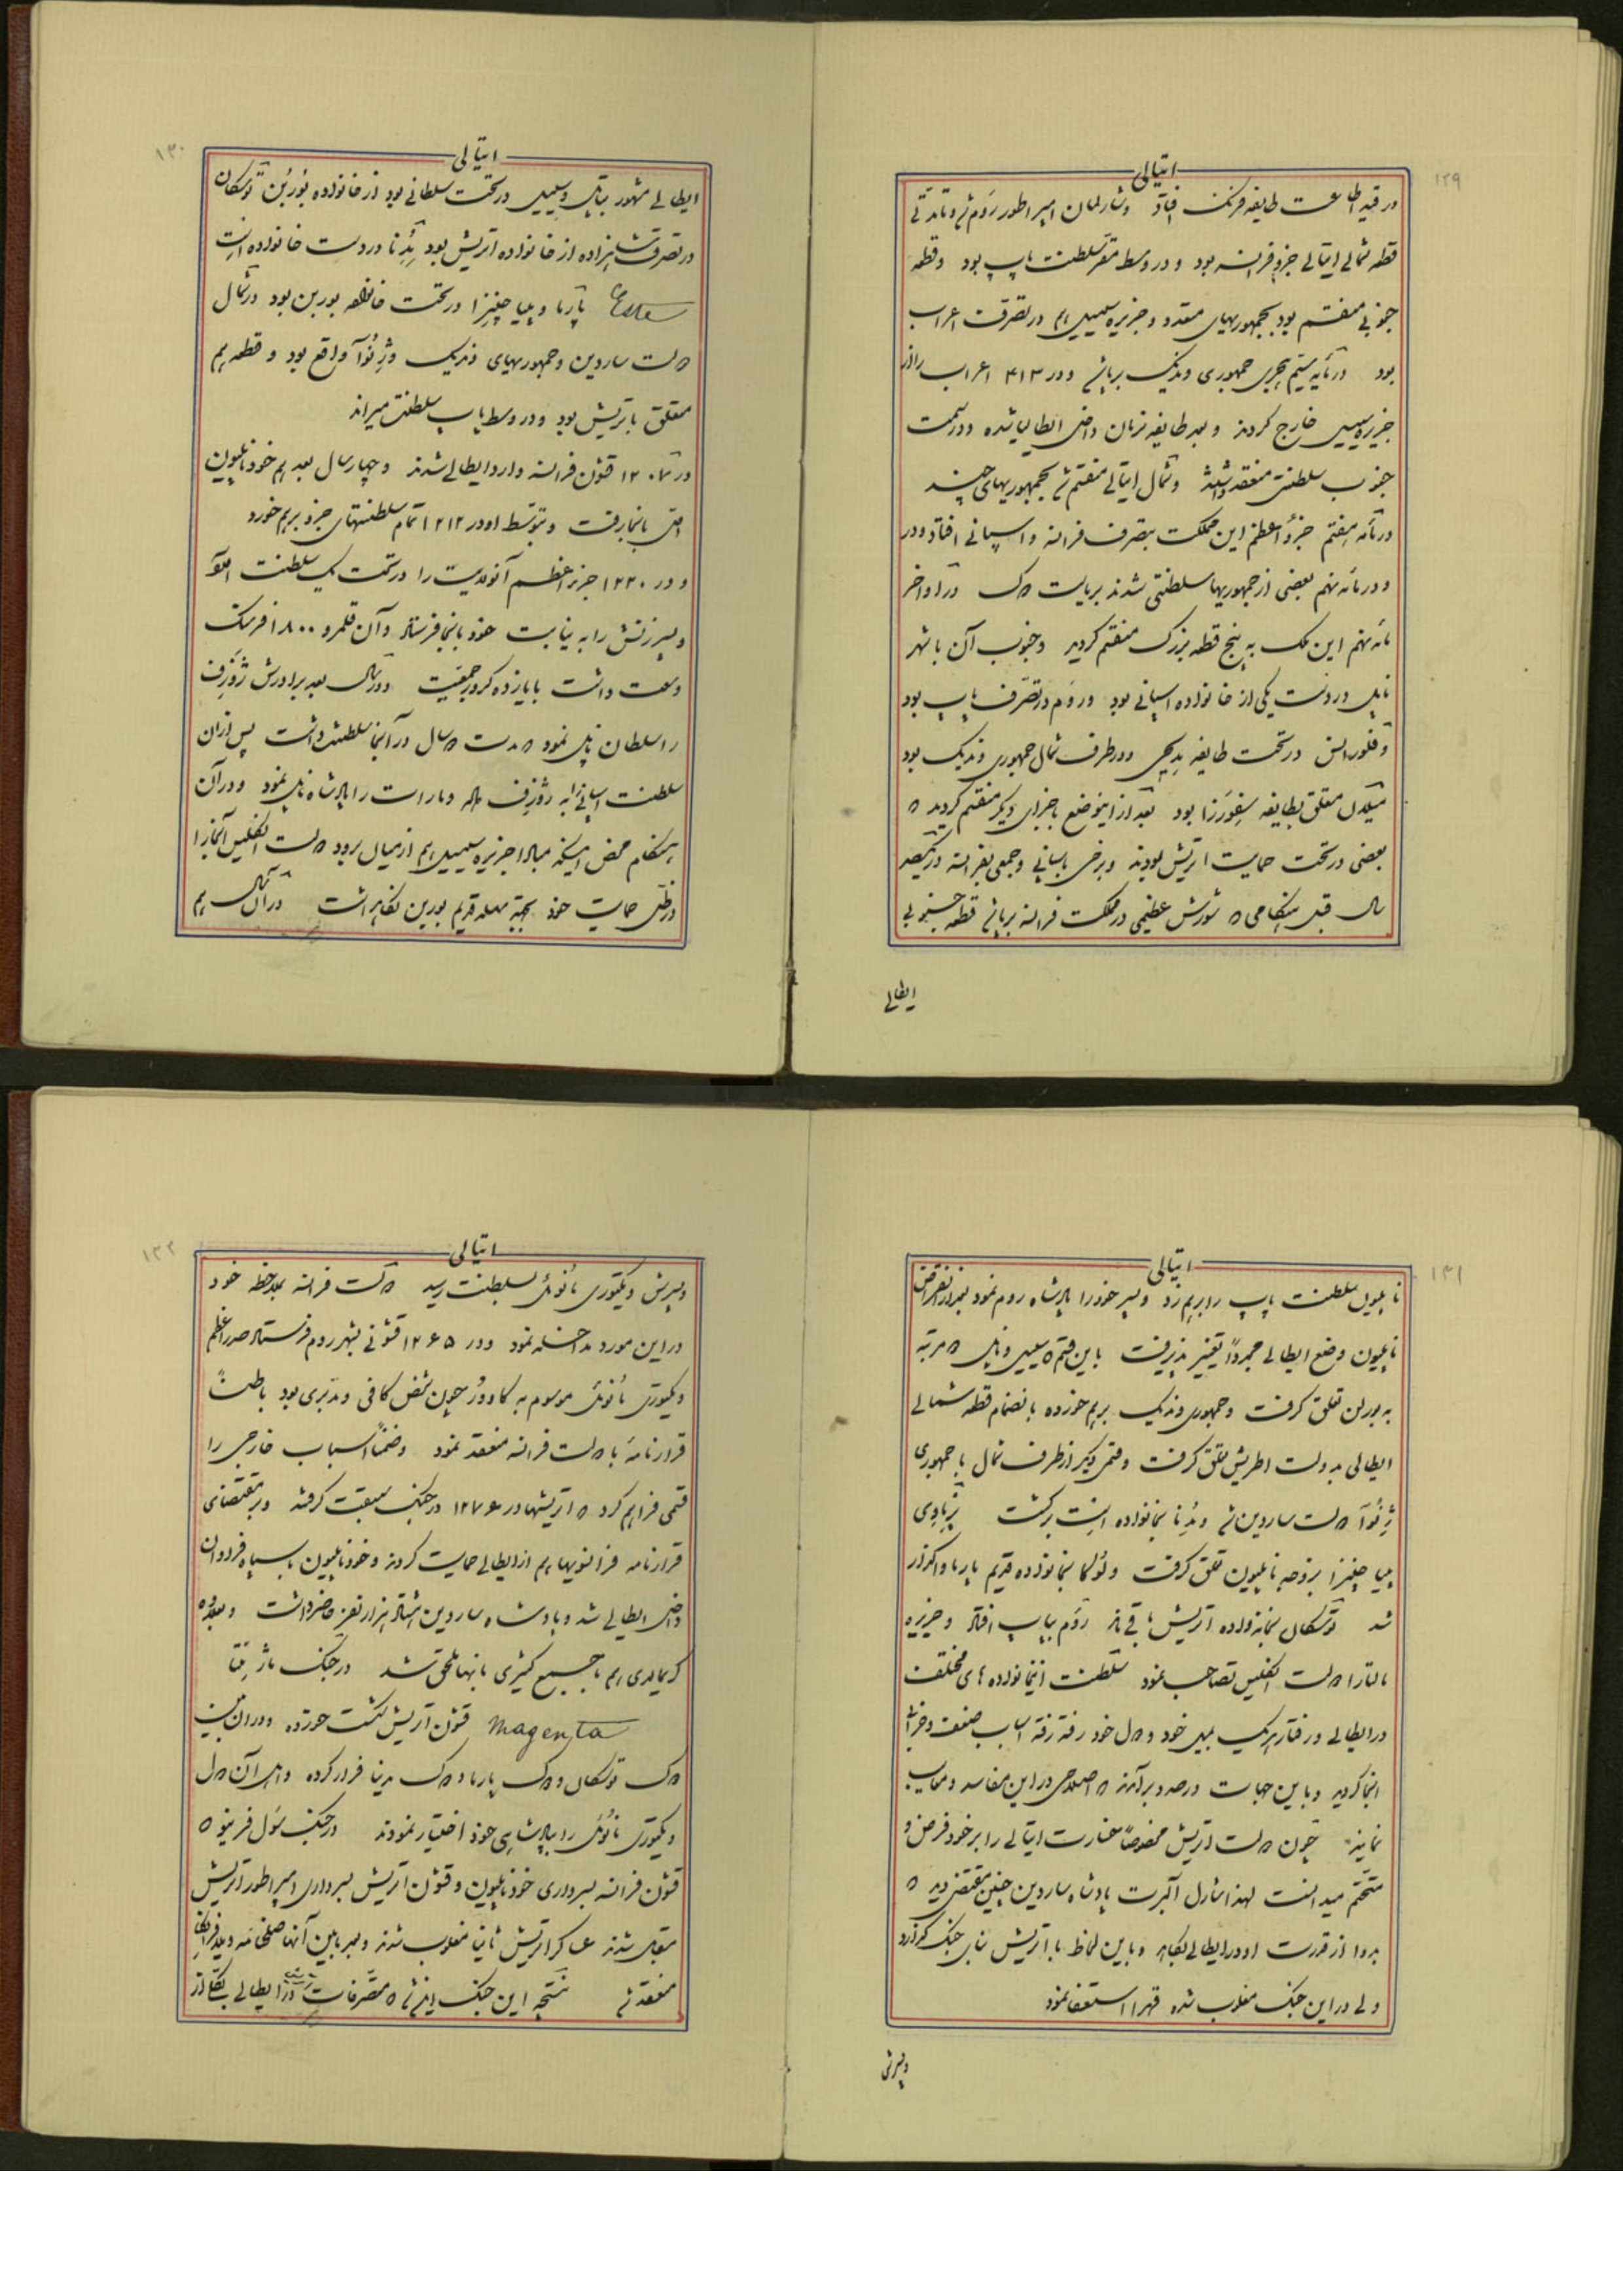 ۱۲۹
ایتالی
در قید اطاعت طایفه فرنک افتاد و شارلمان امپراطور روم شد و تا مدتی
قطعه شمالی ایتالی جزو فرانسه بود و در وسط مقر سلطنت پاپ بود و قطعه
جنوبی منقسم بود بجمهوریهای متعدد و جزیره سیسیل هم در تصرف اعراب
بود در مأیه سیم هجری جمهوری وندیک برپا شد و در ۴۱۳ اعراب را از
جزیره سیسیل خارج کردند و بعد طایفه نرمان داخل ایطالیا شده و در سمت
جنوب سلطنتی منعقد داشتند و شمال ایتالی منقسم شد بجمهوریهای چند
در مأته هفتم جزو اعظم این مملکت بتصرف فرانسه و اسپانی افتاد و در
و در مأته نهم بعضی از جمهوریها سلطنتی شدند بریاست دک در اواخر
مأته نهم این ملک به پنج قطعه بزرک منقسم کردید و جنوب آن با شهر
ناپل در دست یکی از خانواده اسپانی بود و روم در تصرف پاپ بود
و فلورانس در تحت طایفه مدیچی و در طرف شمال جمهوری وندیک بود
میلان متعلق بطایفه سفورزا بود بعد از اینوضع باجزای دیکر منقسم کردید که
بعضی در تحت حمایت اتریش بودند و برخی باسپانی و جمعی بفرانسه در یکصد
سال قبل هنکامی که شورش عظیمی در مملکت فرانسه برپا شد قطعه جنوبی
ایطالی
۱۳۰
ایتالی
ایطالی مشهور بناپل و سیسیل در تحت سلطانی بود از خانواده بوربن توسکان
در تصرف شاهزاده از خانواده اتریش بود مدنا در دست خانواده است
Este پارما و پیاچنیزا در تحت خانواده بوربن بود در شمال
دولت ساردین و جمهوریهای وندیک و ژنوآ واقع بود و قطعه هم
متعلق باتریش بود و در وسط پاپ سلطنت میراند
در ۱۲۰۷ قشون فرانسه وارد ایطالی شدند و چهار سال بعد هم خود ناپلیون
اول بانجا رفت و بتوسط او در ۱۲۱۲ تمام سلطنتهای جزو برهم خورد
و در ۱۲۲۰ جزو اعظم آنولایت را در تحت یک سلطنت آورد
و پسر زنش را به نیابت خود بانجا فرستاد و آن قلمرو ۱۸۰۰ فرسنک
وسعت داشت با یازده کرور جمعیت و در سال بعد برادرش ژوزف
را سلطان ناپل نمود که مدت دو سال در آنجا سلطنت داشت پس از آن
سلطنت اسپانی را به ژوزف داد و مارات را پادشاه ناپل نمود و در آن
هنکام محض اینکه مبادا جزیره سیسیل هم از میان برود دولت انکلیس آنجا را
در ظل حمایت خود بجهة سلسله قدیم بوربن نکاهداشت در آنسال هم
۱۳۱
ایتالی
ناپلیون سلطنت پاپ را برهم زد و پسر خود را پادشاه روم نمود بعد از انقراض
ناپلیون وضع ایطالی مجدداً تغییر پذیرفت باین قسم که سیسیل و ناپل دو مرتبه
به بوربن تعلق کرفت و جمهوری وندیک برهم خورده بانضمام قطعه شمالی
ایطالی بدولت اطریش تعلق کرفت و قسمی دیکر از طرف شمال با جمهوری
ژنوآ دولت ساردین شد و مدنا بخانواده است برکشت
پیاچنیزا بزوجه ناپلیون تعلق کرفت و لوکا بخانواده قدیم پارما واکذار
شد توسکان بخانواده اتریش باقی ماند روم بپاپ افتاد و جزیره
مالتا را دولت انکلیس تصاحب نمود سلطنت اینخانواده های مختلف
در ایطالی و رفتار هریک بمیل خود و دول خود رفته رفته اسباب ضعف و خرابی
انجا کردید و باین جهات درصدد برآمدند که اصلاحی در این مفاسد و معایب
نمایند چون دولت اتریش مخصوصاً خسارت ایتالی را بر خود فرض و
متحتم میدانست لهذا شارل آلبرت پادشاه ساردین چنین مقتضی دید که
بدوا از قدرت او در ایطالی بکاهد و باین لحاظ با اتریش بنای جنک کذارد
ولی در این جنک مغلوب شده قهرا استعفا نمود
و پسرش
۱۳۲
ایتالی
و پسرش ویکتوری مانوئل بسلطنت رسید دولت فرانسه بملاحظه خود
در این مورد مداخله نمود و در ۱۲۶۵ قشونی بشهر روم فرستاد صدراعظم
ویکتوری مانوئل موسوم به کاوور چون شخص کافی و مدبری بود باطناً
قرارنامه با دولت فرانسه منعقد نمود و ضمناً اسباب خارجی را
قسمی فراهم کرد که اتریشها در ۱۲۷۶ در جنک سبقت کرفته و بر مقتضای
قرارنامه فرانسویها هم از ایطالی حمایت کردند و خود ناپلیون با سپاه فراوان
داخل ایطالی شد و پادشاه ساردین هشتاد هزار نفر حاضر داشت و بعلاوه
کریبالدی هم با جمع کثیری بانها ملحق شد در جنک ماژنتا
Magenta قشون اتریش شکست خورده و در آن بین
دک توسکان و دک پارما و دک مدنا فرار کرده و اهل آن دول
ویکتوری مانوئل را بپادشاهی خود اختیار نمودند در جنک سولفرینو که
قشون فرانسه بسرداری خود ناپلیون و قشون اتریش بسرداری امپراطور اتریش
مقابل شدند عساکر اتریش ثانیا مغلوب شدند و بعد مابین آنها صلحنامه ویلافرانکا
منعقد شد نتیجه این جنک این شد که متصرفات اتریش در ایطالی بکلی از